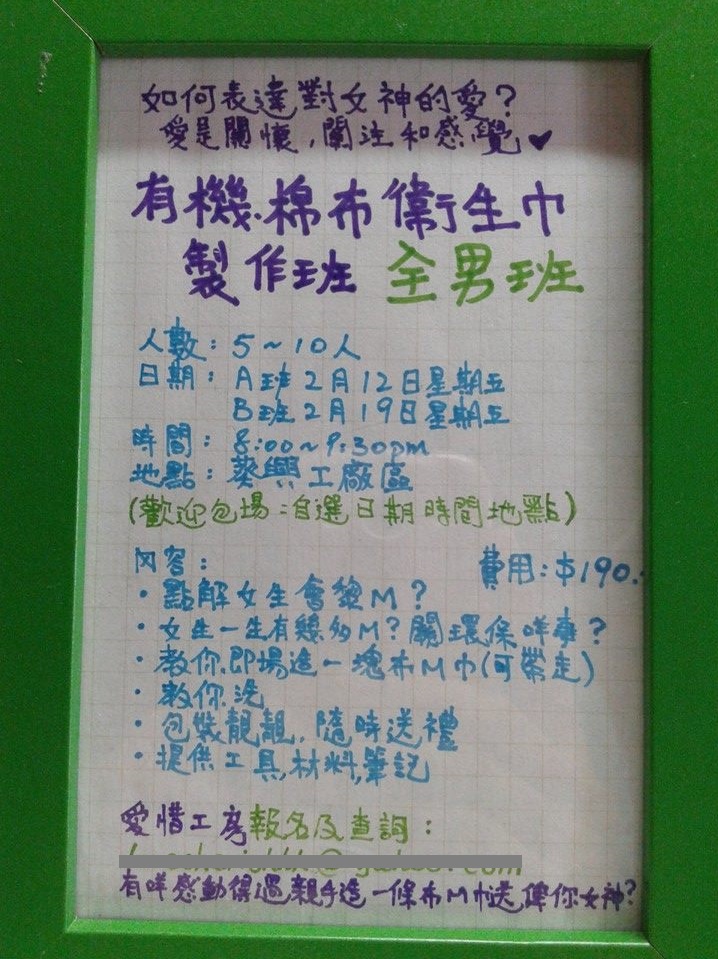 如何表達對女神的愛?
愛是關懷,關注和感覺♥
有機棉布衞生巾
製作班 全男班
人數: 5~10人
日期: A班2月12日星期五
B班2月19日星期五
時間: 8:00~9:30pm
地點: 葵興工廠區
(歡迎包場:自選日期時間地點)
內容: 費用:$190.
·點解女生會嚟M?
·女生一生有幾多M?關環保咩事?
·教你即場造一塊布M巾(可帶走)
·教你洗
·包裝靚靚,隨時送禮
·提供工具,材料,筆記
愛惜工房報名及查詢:
有咩感動得過親手造一條布M巾送俾你女神?